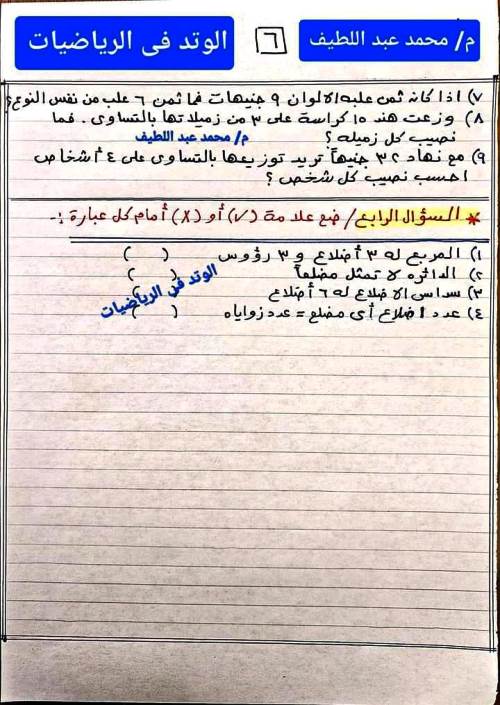 م/ محمد عبد اللطيف
٦
الوتد فى الرياضيات
٧) اذا كانه ثمن علبه الالوان ٩ جنيهات فما ثمن ٦ علب من نفس النوع؟
٨) وزعت هند ١٥ كراسة على ٣ من زميلاتها بالتساوى. فما
نصيب كل زميله؟
م/ محمد عبد اللطيف
٩) مع نهاد ٣٢ جنيهاً تريد توزيعها بالتساوى على ٤ أشخاص
احسب نصيب كل شخص؟
* السؤال الرابع/ ضع علامة (√) أو (X) أمام كل عبارة :-
١) المربع له ٣ أضلاع و ٣ رؤوس ( )
٢) الدائره لا تمثل مضلعاً ( )
٣) سداسى الاضلاع له ٦ أضلاع ( )
٤) عدد اضلاع أى مضلع = عدد زواياه ( )
الوتد فى الرياضيات